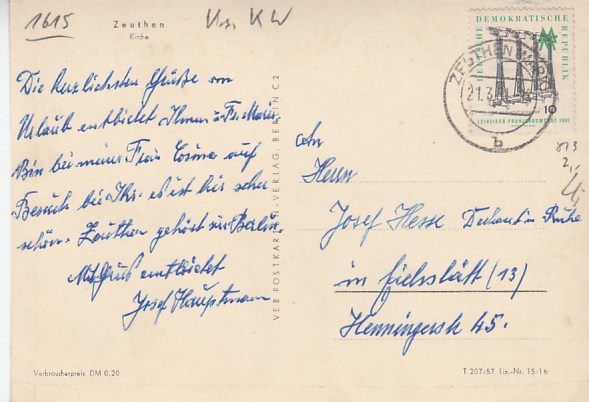 1615
Zeuthen
Kirche
Krs. KW
Die herzlichsten Grüße vom
Urlaub entbietet Ihnen u. Fr. Maria
Bin bei meiner Frau Cosina auf
Besuch bei Ihr. es ist hier sehr
schön. Zeuthen gehört zu Berlin.
Mit Gruß entbietet
Josef Hauptmann
Verbraucherpreis DM 0,20
VEB POSTKARTEN-VERLAG, BERLIN C 2
DEUTSCHE DEMOKRATISCHE REPUBLIK
10
LEIPZIGER FRÜHJAHRSMESSE 1961
ZEUTHEN (MARK)
21.3.
b
An
Herrn
Josef Hesse Dechant in Ruhe
in Eichstätt (13)
Henningerstr 45.
T 207/57 Liz.-Nr. 15/16